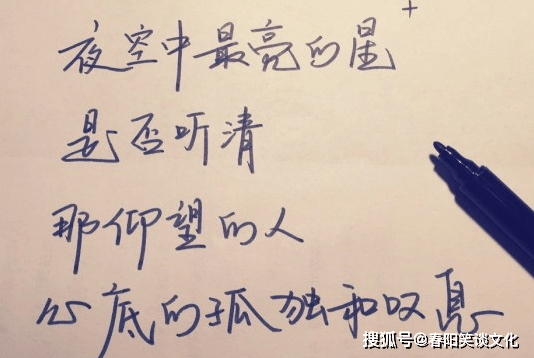 夜空中最亮的星
是否听清
那仰望的人
心底的孤独和叹息
搜狐号@春阳笑谈文化